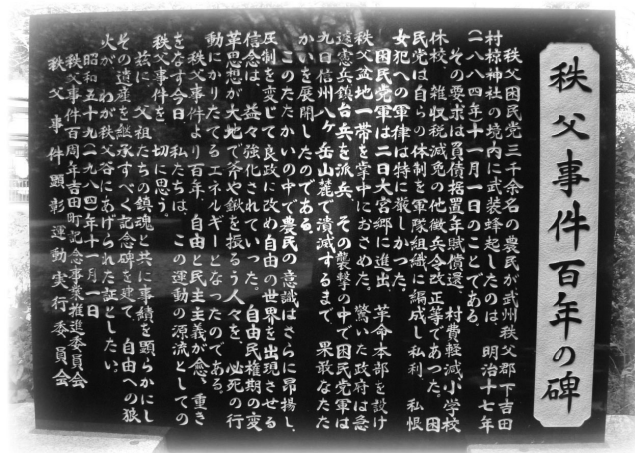 秩父事件百年の碑
秩父困民党三千余名の農民が武州秩父郡下吉田
村椋神社の境内に武装蜂起したのは、明治十七年
(一八八四年)十一月一日のことである。
その要求は負債据置年賦償還、村費軽減、小学校
休校、雑収税減免の他徴兵令改正等であった。困
民党は自らの体制を軍隊組織に編成し私利、私恨
女犯への軍律は特に厳しかった。
困民党軍は二日大宮郷に進出、革命本部を設け
秩父盆地一帯を掌中におさめた。驚いた政府は急
遽憲兵鎮台兵を派兵、その襲撃の中で困民党軍は
九日信州八ヶ岳山麓で潰滅するまで、果敢なたた
かいを展開したのである。
このたたかいの中で農民の意識はさらに昂揚し、
圧制を変じて良政に改め自由の世界を出現させる
信念は、益々強化されていった。自由民権期の変
革思想が大地で斧や鍬を振るう人々を、必死の行
動にかりたてるエネルギーとなったのである。
秩父事件より百年、自由と民主主義が念、重き
をなす今日、私たちは、この運動の源流としての
秩父事件を、切に思う。
茲に、父祖たちの鎮魂と共に事績を顕らかにし
その遺産を継承すべく記念碑を建て、自由への狼
火が、わが秩父谷にあげられた証としたい。
昭和五十九(一九八四)年十一月一日
秩父事件百周年吉田町記念事業推進委員会
秩父事件顕彰運動実行委員会